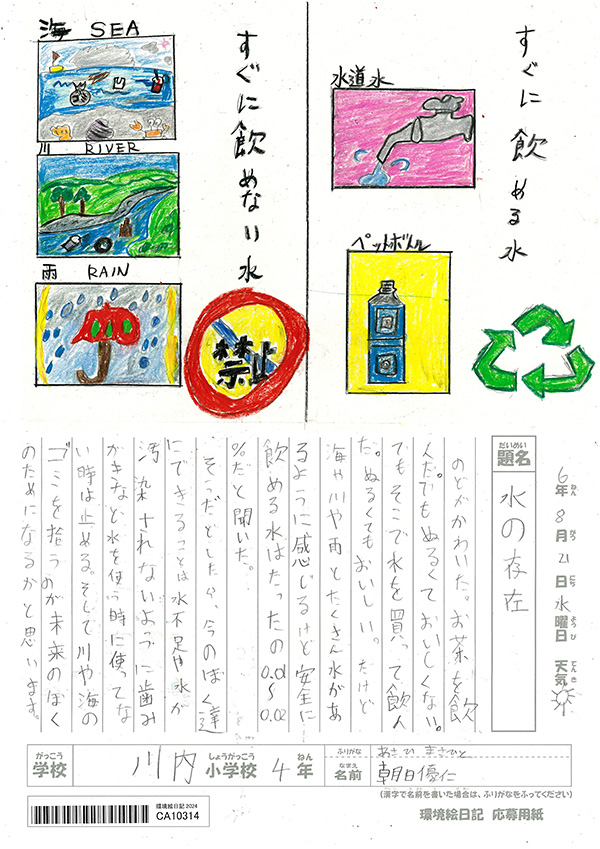 すぐに飲める水
水道水
ペットボトル
すぐに飲めない水
海 SEA
川 RIVER
雨 RAIN
禁止
6年8月21日水曜日 天気
ねん がつ にち ようび てんき
だいめい
題名
水の存在
のどがかわいた。お茶を飲
んだ。でもぬるくておいしくない。
でもそこで水を買って飲ん
だ。ぬるくてもおいしい。だけど
海や川や雨とたくさん水があ
るように感じるけど安全に
飲める水はたったの0.01〜0.02
%だと聞いた。
そうだとしたら、今のぼく達
にできることは水不足や水が
汚染されないように歯み
がきなど水を使う時に使ってな
い時は止める。そして川や海の
ゴミを拾うのが未来のぼく
のためになるかと思います。
がっこう
学校
川内
しょうがっこう
小学校
4
ねん
年
ふりがな
あさひ まさひと
なまえ
名前
朝日優仁
(漢字で名前を書いた場合は、ふりがなをふってください)
環境絵日記 2024
CA10314
環境絵日記 応募用紙